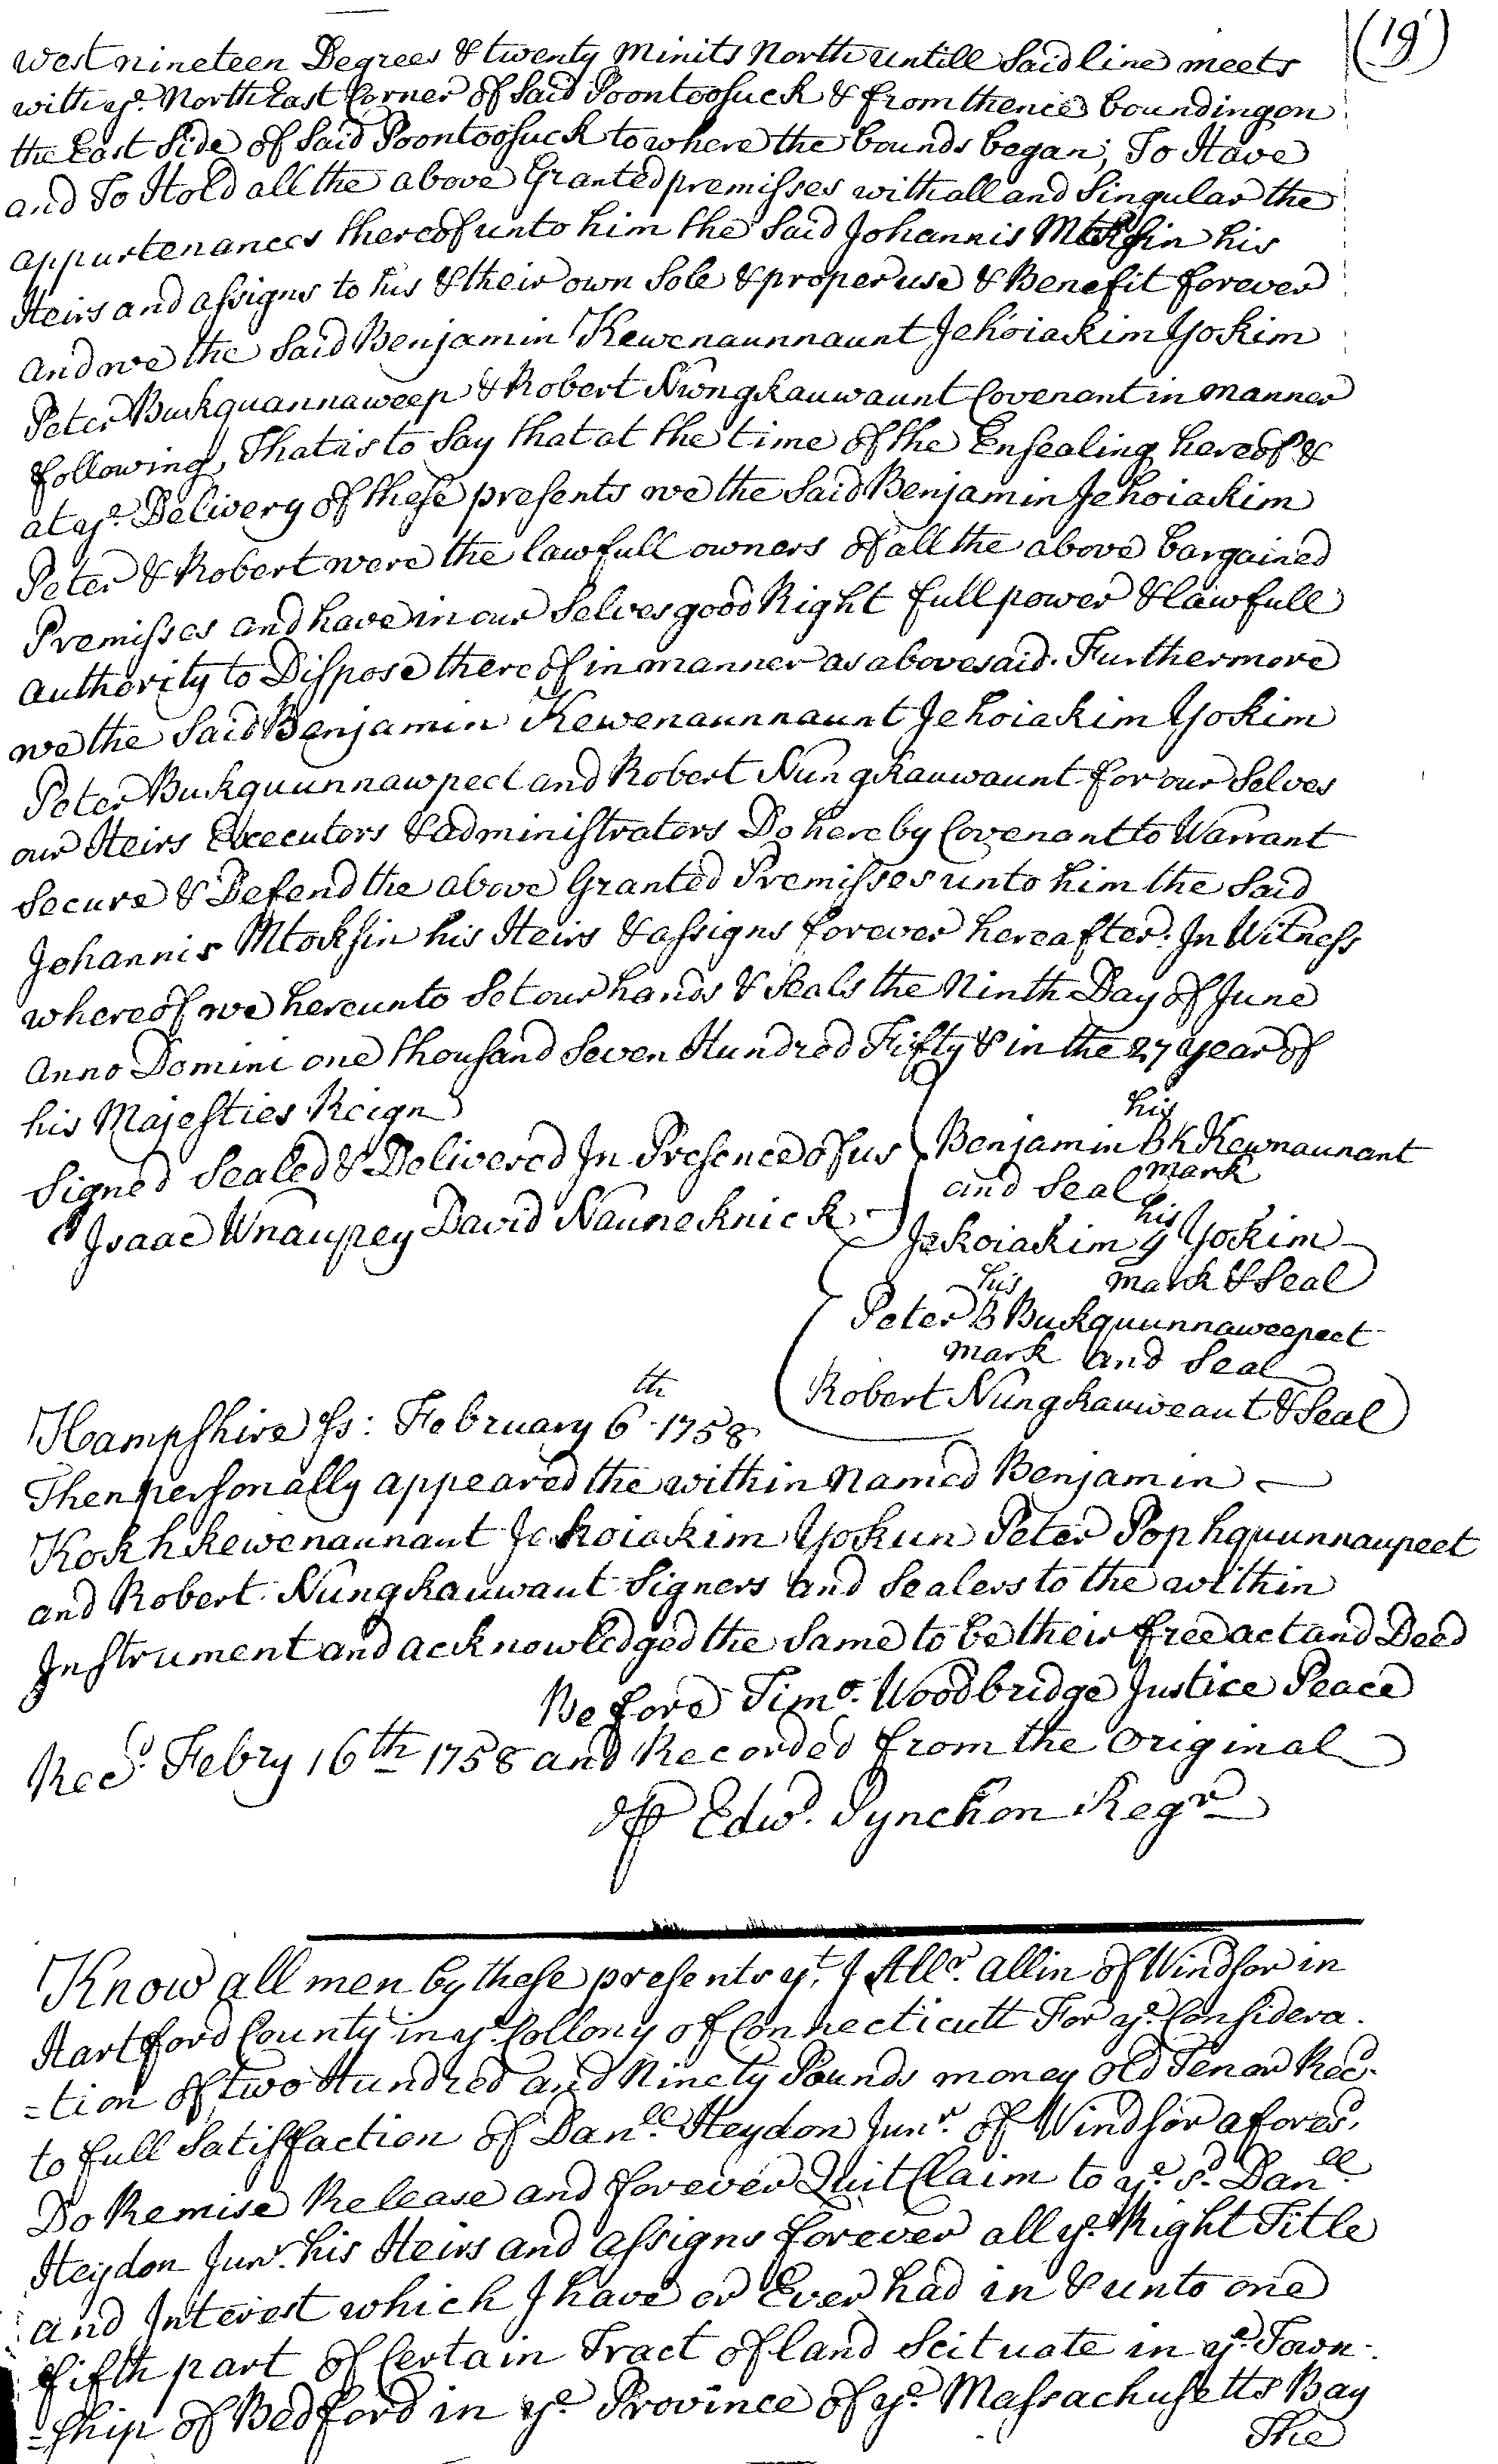 (19)
west nineteen Degrees & twenty Minits North untill Said line meets
with ye. North East Corner of Said Poontoosuck & from thence bounding on
the East Side of Said Poontoosuck to where the bounds began; To Have
and To Hold all the above Granted premisses with all and Singular the
appurtenances thereof unto him the Said Johannis Mtoksin his
Heirs and assigns to his & their own Sole & proper use & Benefit forever
and we the Said Benjamin Kewenaunnaunt Jehoiakim Yokim
Peter Buckquannaweep & Robert Nungkauwaunt Covenant in manner
following, That is to Say that at the time of the Ensealing hereof &
at ye. Delivery of these presents we the Said Benjamin Jehoiakim
Peter & Robert were the lawfull owners of all the above bargained
Premisses and have in our Selves good Right full power & lawfull
authority to Dispose thereof in manner as abovesaid. Furthermore
we the Said Benjamin Kewenaunnaunt Jehoiakim Yokim
Peter Buckquunnawpect and Robert Nungkauwaunt for our Selves
our Heirs Executors & administrators Do hereby Covenant to Warrant
Secure & Defend the above Granted Premisses unto him the Said
Johannis Mtocksin his Heirs & assigns forever hereafter. In Witness
whereof we hereunto Set our hands & Seals the Ninth Day of June
Anno Domini one thousand Seven Hundred Fifty & in the 27 year of
his Majesties Reign
Signed Sealed & Delivered In Presence of us
Isaac Wnaupey David Nauneknick
his
Benjamin BK Kewnaunant
mark
and Seal
his
Jehoiakim y Yokim
mark & Seal
his
Peter B Buckquunnaweepect
mark and Seal
Robert Nungkauweaunt & Seal
Hampshire Ss: February 6th 1758
Then personally appeared the within Named Benjamin
Kokhkewenaunnant Jehoiakim Yokun Peter Pophquunnaupeet
and Robert Nungkauwaut Signers and Sealers to the within
Instrument and acknowledged the Same to be their free act and Deed
Before Timo. Woodbridge Justice Peace
Recd. Febry 16th 1758 and Recorded from the Original
P Edwd. Pynchon Regr
Know all men by these presents yt. I Allr. allin of Windsor in
Hartford County in ye. Collony of Connecticutt For ye. Considera.
=tion of two Hundred and Ninety Pounds money Old Tenor Recd.
to full Satisfaction of Danll. Heydon Junr. of Windsor afores.
Do Remise Release and forever Quit Claim to ye. sd. Danll
Heydon Junr. his Heirs and assigns forever all ye. Right Title
and Interest which I have or Ever had in & unto one
fifth part of Certain Tract of land Scituate in ye. Town-
=ship of Bedford in ye Province of ye. Massachusetts Bay
The